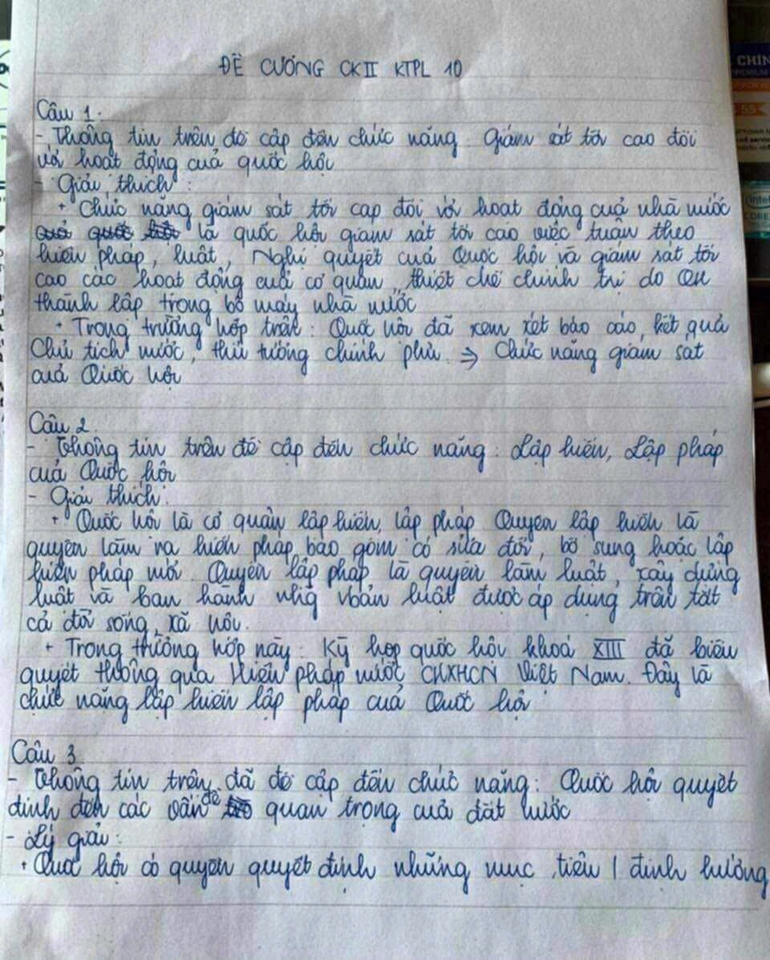 ĐỀ CƯƠNG CKII KTPL 10
Câu 1:
- Thông tin trên đề cập đến chức năng giám sát tối cao đối
với hoạt động của quốc hội
- Giải thích:
+ Chức năng giám sát tối cao đối với hoạt động của nhà nước
là quốc hội giám sát tối cao việc tuân theo
hiến pháp, luật, Nghị quyết của Quốc hội và giám sát tối
cao các hoạt động của cơ quan, thiết chế chính trị do QH
thành lập trong bộ máy nhà nước
+ Trong trường hợp trên: Quốc hội đã xem xét báo cáo, kết quả
Chủ tịch nước, thủ tướng chính phủ. ⇒ Chức năng giám sát
của Quốc hội
Câu 2.
- Thông tin trên đề cập đến chức năng: Lập hiến, Lập pháp
của Quốc hội
- Giải thích:
+ Quốc hội là cơ quan lập hiến, lập pháp. Quyền lập hiến là
quyền làm ra hiến pháp bao gồm có sửa đổi, bổ sung hoặc lập
hiến pháp mới. Quyền lập pháp là quyền làm luật, xây dựng
luật và ban hành nhg vbản luật được áp dụng trên tất
cả đời sống, xã hội.
+ Trong trường hợp này: Kỳ họp quốc hội khoá XIII đã biểu
quyết thông qua Hiến pháp nước CHXHCN Việt Nam. Đây là
chức năng lập hiến lập pháp của Quốc hội
Câu 3.
- Thông tin trên đã đề cập đến chức năng: Quốc hội quyết
định đến các vấn đề quan trọng của đất nước
- Lý giải:
+ Quốc hội có quyền quyết định những mục tiêu / định hướng
CHÍN
intel
CORE